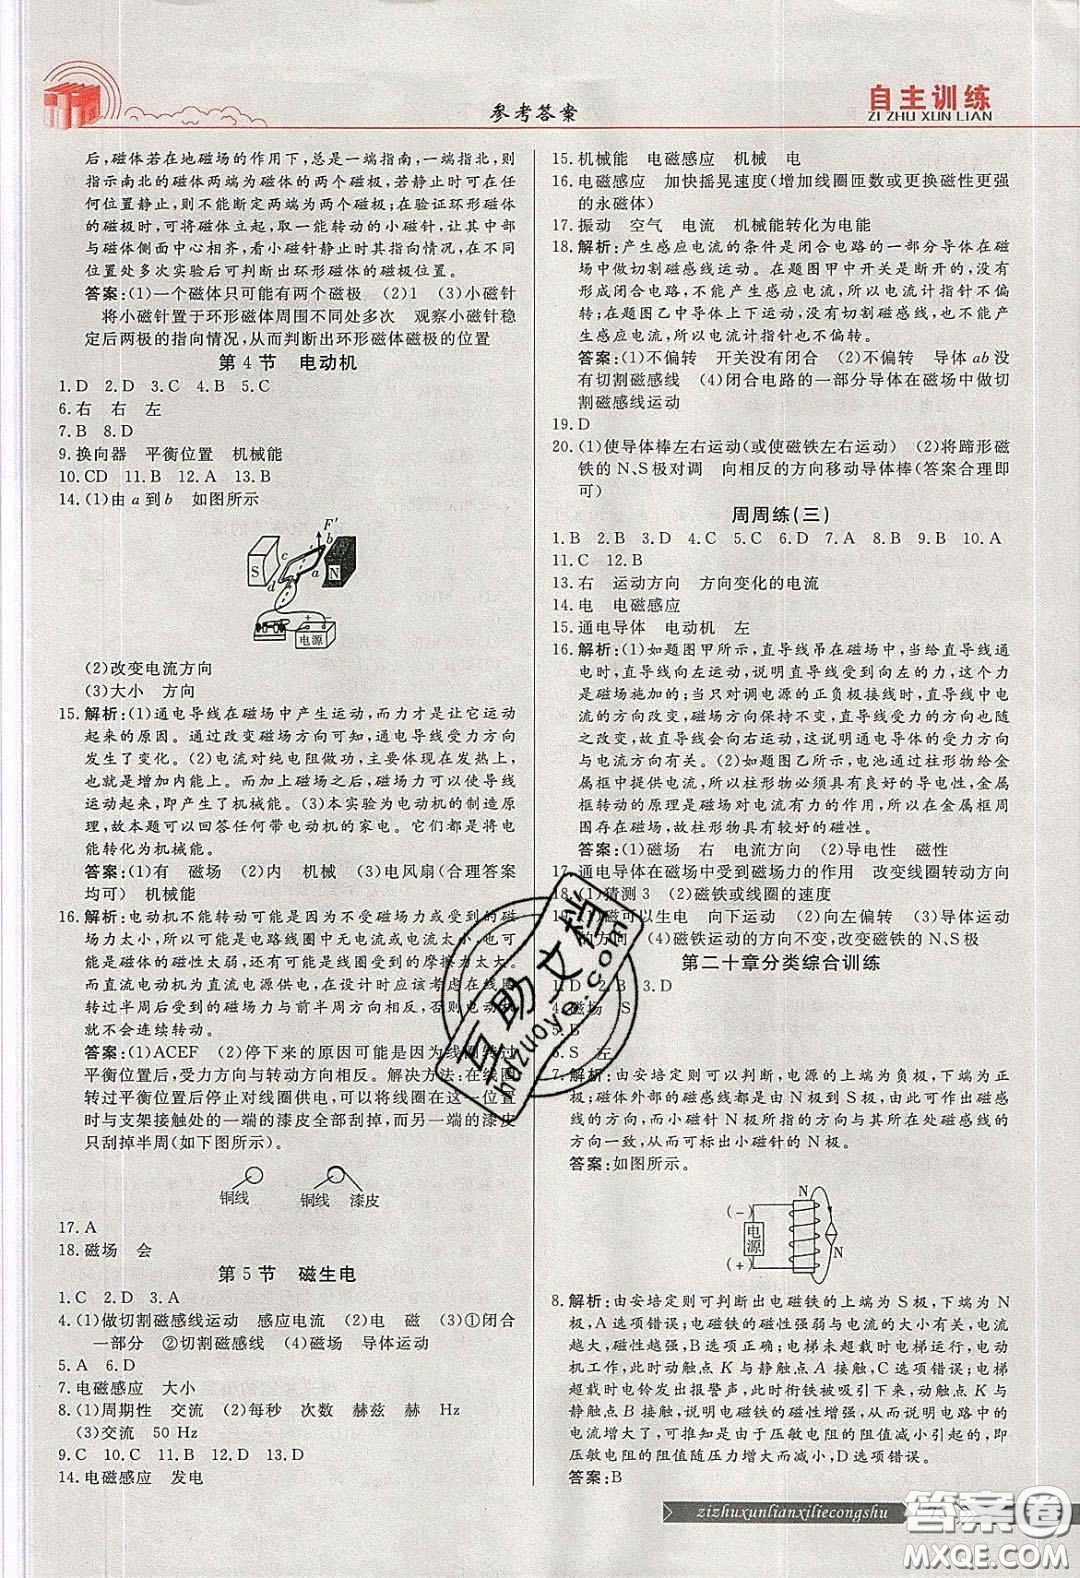 参考答案
自主训练
ZI ZHU XUN LIAN
后,磁体若在地磁场的作用下,总是一端指南,一端指北,则
指示南北的磁体两端为磁体的两个磁极;若静止时可在任
何位置静止,则不能断定有两个磁极;在验证环形磁体的
磁极时,可将磁体立起,取一能转动的小磁针,让其中部
与磁体侧面中心相齐,看小磁针静止时其指向情况,在不同
位置处多次实验后可判断出环形磁体的磁极位置。
答案:(1)一个磁体只可能有两个磁极 (2)1 (3)小磁针
将小磁针置于环形磁体周围不同处多次 观察小磁针稳
定后两极的指向情况,从而判断出环形磁体磁极的位置
第4节 电动机
1.D 2.D 3.C 4.B 5.C
6.右 右 左
7.B 8.D
9.换向器 平衡位置 机械能
10.CD 11.B 12.A 13.B
14.(1)由a到b 如图所示
F′
b
c
S
a
N
d
电源
(2)改变电流方向
(3)大小 方向
15.解析:(1)通电导线在磁场中产生运动,而力才是让它运动
起来的原因。通过改变磁场方向可知,通电导线受力方向
发生了变化。(2)电流对纯电阻做功,主要体现在发热上,
也就是增加内能上。而加上磁场之后,磁场力可以使导线
运动起来,即产生了机械能。(3)本实验为电动机的制造原
理,故本题可以回答任何带电动机的家电。它们都是将电
能转化为机械能。
答案:(1)有 磁场 (2)内 机械 (3)电风扇(合理答案
均可) 机械能
16.解析:电动机不能转动可能是因为不受磁场力或受到的磁
场力太小,所以可能是电路线圈中无电流或电流太小或者
磁体的磁性太弱,还有可能是线圈受到的摩擦力太大。
而直流电动机为直流电源供电,在设计时应该考虑在线圈
转过半周后受到的磁场力与前半周方向相反,否则电动机
就不会连续转动。
答案:(1)ACEF (2)停下来的原因可能是因为线圈转过
平衡位置后,受力方向与转动方向相反。解决方法:在线圈
转过平衡位置后停止对线圈供电,可以将线圈在这一位置
时与支架接触处的一端的漆皮全部刮掉,而另一端的漆皮
只刮掉半周(如下图所示)。
铜线 铜线 漆皮
17.A
18.磁场 会
第5节 磁生电
1.C 2.D 3.A
4.(1)做切割磁感线运动 感应电流 (2)电 磁 (3)①闭合
一部分 ②切割磁感线 (4)磁场 导体运动
5.A 6.D
7.电磁感应 大小
8.(1)周期性 交流 (2)每秒 次数 赫兹 赫 Hz
(3)交流 50 Hz
9.C 10.C 11.D 12.D 13.D
14.电磁感应 发电
15.机械能 电磁感应 机械 电
16.电磁感应 加快摇晃速度(增加线圈匝数或更换磁性更强
的永磁体)
17.振动 空气 电流 机械能转化为电能
18.解析:产生感应电流的条件是闭合电路的一部分导体在磁
场中做切割磁感线运动。在题图甲中开关是断开的,没有
形成闭合回路,不能产生感应电流,所以电流计指针不偏
转;在题图乙中导体上下运动,没有切割磁感线,不能产生
感应电流,所以电流计指针也不偏转。
答案:(1)不偏转 开关没有闭合 (2)不偏转 导体ab没
有切割磁感线 (4)闭合电路的一部分导体在磁场中做切
割磁感线运动
19.D
20.(1)使导体棒左右运动(或使磁铁左右运动) (2)将蹄形磁
铁的N、S极对调 向相反的方向移动导体棒(答案合理即
可)
周周练(三)
1.B 2.B 3.D 4.C 5.C 6.D 7.A 8.B 9.B 10.A
11.C 12.B
13.右 运动方向 方向变化的电流
14.电 电磁感应
15.通电导体 电动机 左
16.解析:(1)如题图甲所示,直导线吊在磁场中,当给直导线通
电时,直导线向左运动,说明直导线受到向左的力,这个力
是磁场施加的;当只对调电源的正负极接线时,直导线中电
流的方向改变,磁场方向保持不变,直导线受到的力方向也
随之改变,故直导线会向右运动,这说明通电导体受力方向
与电流方向有关。(2)如题图乙所示,电池通过柱形物给金
属框中提供电流,所以柱形物必须具有良好的导电性,金属
框转动的原理是磁场对电流有力的作用,所以在金属框周
围存在磁场,故柱形物具有较好的磁性。
答案:(1)磁场 右 电流方向 (2)导电性 磁性
17.通电导体在磁场中受到磁场力的作用 改变线圈转动方向
18.(1)猜测3 (2)磁铁或线圈的速度
19.(1)磁可以生电 向下运动 (2)向左偏转 (3)导体运动
的方向 (4)磁铁运动的方向不变,改变磁铁的N、S极
第二十章分类综合训练
1.D 2.B 3.D
4.磁场 S
5.B
6.S 左
7.解析:由安培定则可以判断,电源的上端为负极,下端为正
极;磁体外部的磁感线都是由N极到S极,所以右侧的磁感线
的方向向下,而小磁针N极的指向与其所在处磁感线的
方向一致,从而可标出小磁针的N极。
答案:如图所示。
N
(－)
电源
N
(＋)
8.解析:由安培定则可判断出电磁铁的上端为S极,下端为N
极,A选项错误;电磁铁的磁性强弱与电流的大小有关,电流
越大,磁性越强,B选项正确;电梯未超载时电梯运行,电动
机工作,此时动触点K与静触点A接触,C选项错误;电梯
超载时电铃发出报警声,此时衔铁被吸下来,动触点K与
静触点B接触,说明电磁铁的磁性增强,从而说明电路中的
电流增大了,可推知是由于压敏电阻的阻值减小引起的,即
压敏电阻的阻值随压力增大而减小,D选项错误。
答案:B
zizhuxunlianxiliecongshu
互助文档
huzuoye.com
答案圈
MXQE.COM